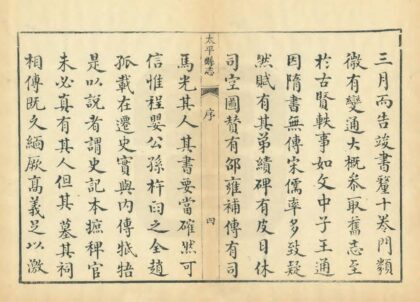 三月而告竣書釐十卷門類
微有變通大概參取舊志至
於古賢軼事如文中子王通
因隋書無傳宋儒率多致疑
然賦有其弟績碑有皮日休
司空圖贊有邵雍補傳有司
太平縣志
序
四
馬光其人其書要當確然可
信惟程嬰公孫杵臼之全趙
孤載在遷史實與內傳牴牾
是以說者謂史記本摭稗官
未必真有其人但其墓其祠
相傳既久緬厥高義足以激